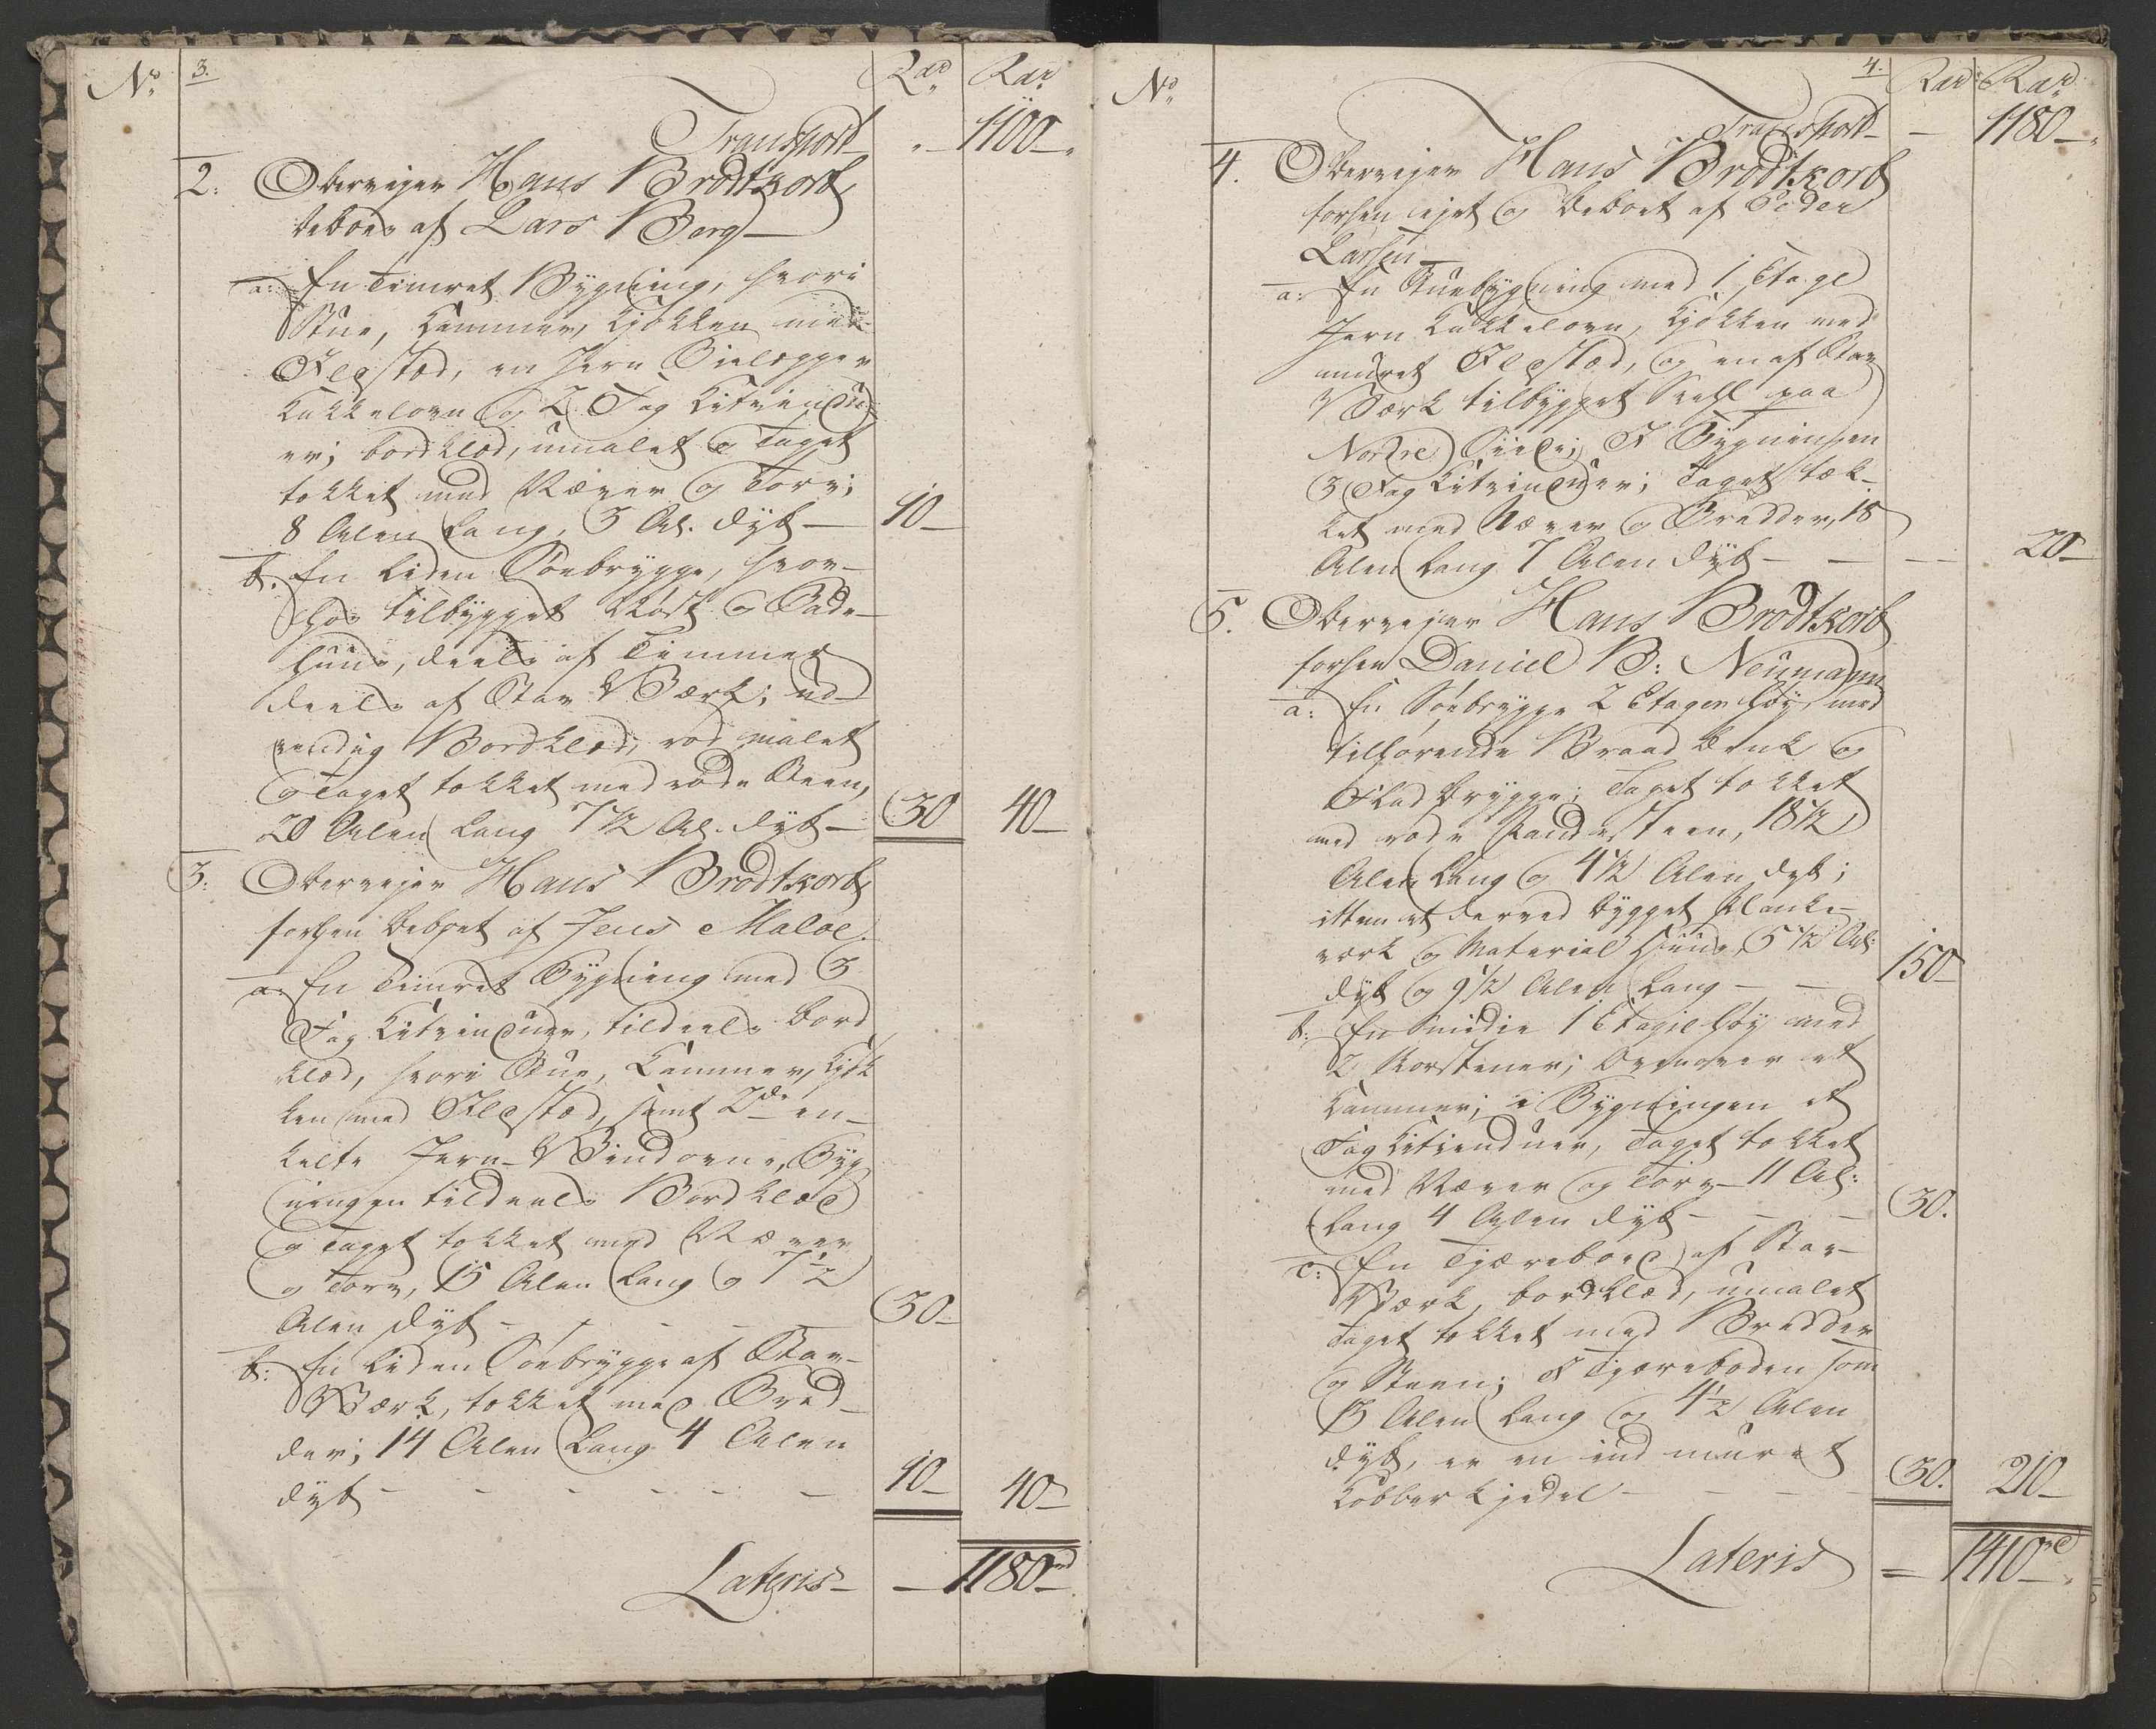 No. 3. Rdr. Rdr.
Transport - 1100-
2. Oberveyer Hans Brodtkorb
beboes af Lars Berg -
a. En Timret Bygning, hvori
Stue, Kammer, Kjökken med
Ildstæd, en Jern Bielægger
Kakkelovn og 2 Fag Litvindu
er; bordklæd, umalet og Taget
tækket med Næver og Torv;
8 Alen lang, 5 Al. dyb - 10-
b. En liden Söebrygge, hvor-
hos tilbygget Røst og Bade-
huus, deels af Timmer
deels af Stav Værk; ud-
vendig Bordklæd, röd malet
og Taget tækket med röde Steen,
20 Alen lang 7 1/2 Al. dyb - 30 40-
3. Oberveyer Hans Brodtkorb
forhen beboet af Jens Maloe.
a. En Timret Bygning med 3
Fag Litvinduer, tildeels bord
klæd, hvori Stue, Kammer, Kjök
ken med Ildstæd, samt 2de en-
kelte Jern-Vindovne, Byg
ningen tildeels Bordklæd
og Taget tækket med Næver
og Torv, 15 Alen lang og 7 1/2
Alen dyb - - - - 30-
b. En liden Söebrygge af Stav-
Værk, tækket med Bred-
der; 14 Alen lang 4 Alen
dyb - - - - - - 10- 40-
Lateris - - 1180 rd
No. 4. Rdr. Rdr.
Transport - - 1180-
4. Oberveyer Hans Brodtkorb
forhen ejet og beboet af Peder
Larsen -
a. En Stuebygning med 1 Etage
Jern Kakkelovn, Kjökken med
muret Ildstæd, og en af Stav
Værk tilbygget Svahl paa
Nordre Siide; I Bygningen
3 Fag Litvinduer; Taget tæk-
ket med Næver og Bredder, 15
Alen lang 7 Alen dyb - - - 20-
5. Oberveyer Hans Brodtkorb
forhen Daniel B: Neumann
a: En Söebrygge 2 Etager höy, med
tilhörende Braadbænk og
Fladbrygge; Taget tækket
med röde Pandesteen, 18 1/2
Alen lang og 4 1/2 Alen dyb;
ittem et derved bygget Planke-
værk og Material Huus, 5 1/2 Al:
dyb og 9 1/2 Alen lang - - 150-
b: En Smidie 1 Etagie höy med
2 Skorstener; Ovenover et
Kammer; i Bygningen et
Fag Litvinduer, Taget tækket
med Næver og Torv - 11 Al:
lang 4 Alen dyb - - - 30.
c: En Tjærebod af Stav-
Værk, bordklæd, umalet
Taget tækket med Bredder
og Steen; I Tjæreboden som
13 Alen lang og 4 1/2 Alen
dyb, er en ind muret
Kobber Kjedel - - - - 30. 210-
Lateris = 1410 rd